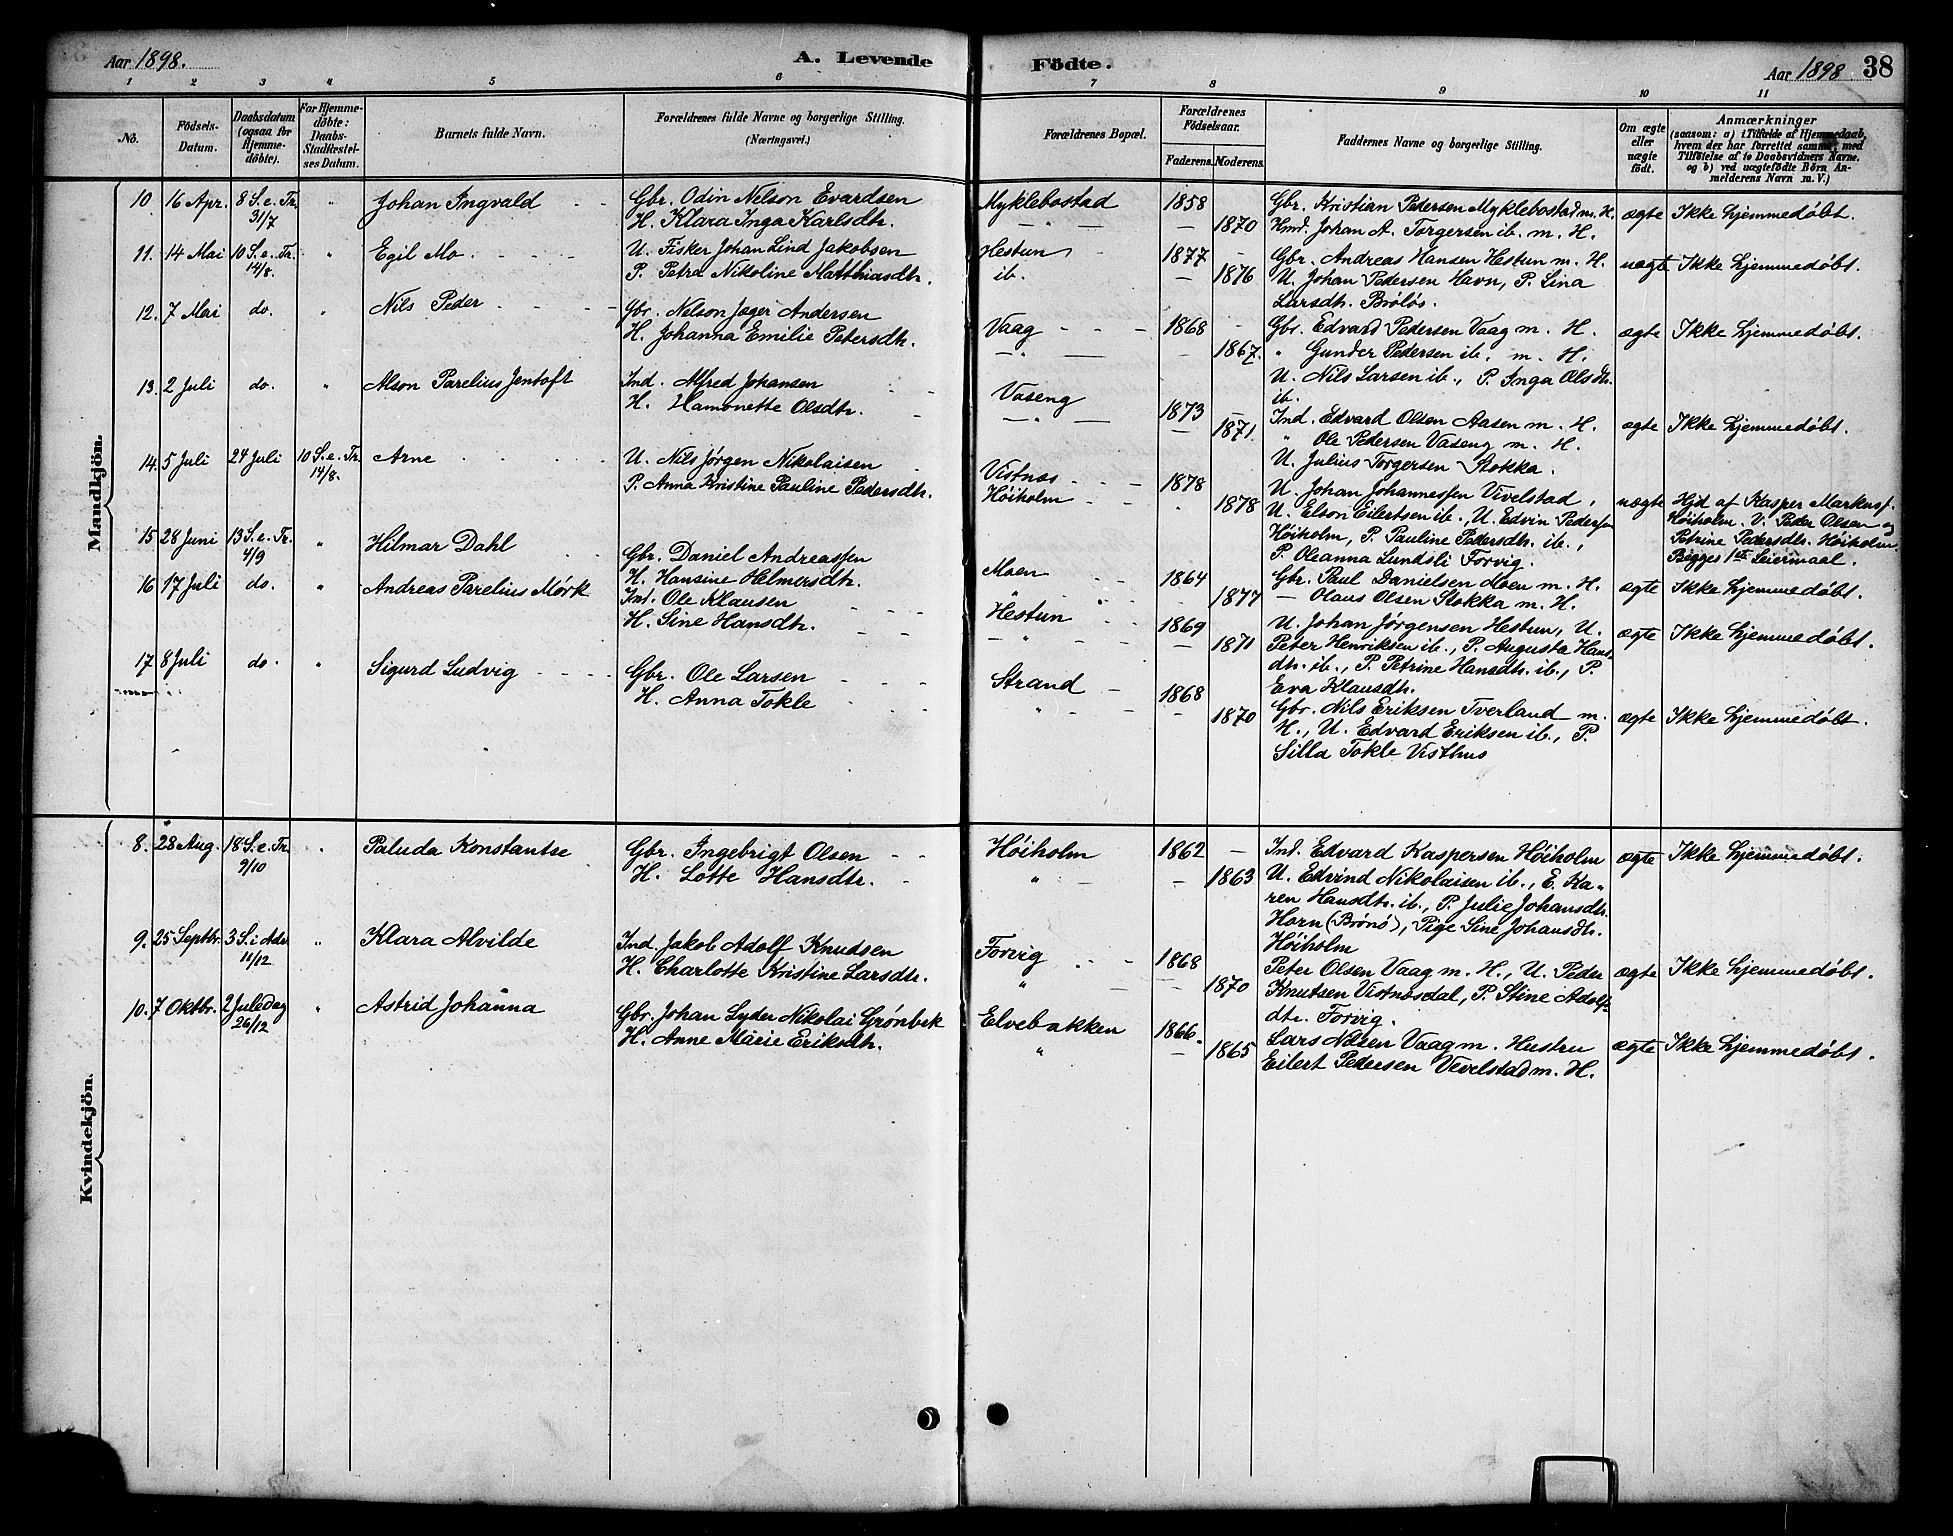 Aar 1898.
A. Levende Fødte.
Aar 1898 38
1 2 3 4 5 6 7 8 9 10 11
No.
Födsels-Datum.
Daabsdatum (ogsaa for Hjemme-döbte).
For Hjemme-döbte: Daabs-Stadfæstel-ses Datum.
Barnets fulde Navn.
Forældrenes fulde Navne og borgerlige Stilling. (Næringsvei.)
Forældrenes Bopæl.
Forældrenes Födselsaar.
Faderens. Moderens.
Faddernes Navne og borgerlige Stilling.
Om ægte eller uægte født.
Anmærkninger
(saasom: a) i Tilfælde af Hjemmedaab,
hvem der har forrettet samme, med
Tilføielse af to Daabsvidners Navne.
og b) ved uægtefødte Börn An-
melderens Navn m. V.)
Mandkjön.
10. 16 Apr. 8 S. e. Tr. 31/7 " Johan Ingvald
Gbr. Odin Nelson Evardsen
H. Klara Inga Karlsdtr.
Myklebostad
1858 1870
Gbr. Kristian Pedersen Myklebostad m. H.
Hmd. Johan A. Torgersen ib. m. H.
ægte Ikke hjemmedøbt.
11. 14 Mai 10 S. e. Tr. 14/8. " Egil Mo
U. Fisker Johan Lind Jakobsen
P. Petra Nikoline Matthiasdtr.
Hestun
ib.
1877 1876
Gbr. Andreas Hansen Hestun m. H.
U. Johan Pedersen Havn, P. Lina
Larsdtr. Brøløs.
uægte Ikke hjemmedøbt.
12. 7 Mai do. " Nils Peder
Gbr. Nelson Jæger Andersen
H. Johanna Emilie Petersdtr.
Vaag
1868 1867.
Gbr. Edvard Pedersen Vaag m. H.
" Gunder Pedersen ib. m. H.
U. Nils Larsen ib., P. Inga Olsdtr.
ib.
ægte Ikke hjemmedøbt.
13. 2 Juli do. " Alson Parelius Jentoft
Ind. Alfred Johansen
H. Hamonette Olsdtr.
Vaseng
1873 1871.
Ind. Edvard Olsen Aasen m. H.
" Ole Pedersen Vaseng m. H.
U. Julius Torgersen Stokka.
ægte Ikke hjemmedøbt.
14. 5 Juli 24 Juli 10 S. e. Tr. 14/8. Arne
U. Nils Jørgen Nikolaisen
P. Anna Kristine Pauline Pedersdtr.
Vistnes
Høiholm
1878 1878
U. Johan Johannessen Vivelstad,
U. Elson Eilertsen ib., U. Edvin Pedersen
Høiholm, P. Pauline Pedersdtr. ib.,
P. Oleanna Lundsli Forvig.
uægte Hjd af Kasper Markusf.
Høiholm. V. Peder Olsen og
Petrine Pedersdtr. Høiholm.
Begges 1ste Leiermaal.
15 28 Juni 13 S. e. Tr. 4/9 " Hilmar Dahl
Gbr. Daniel Andreassen
H. Hansine Helmersdtr.
Moen
1864 1877
Gbr. Paul Danielsen Moen m. H.
— Olaus Olsen Stokka m. H.
ægte Ikke hjemmedøbt.
16 17 Juli do. " Andreas Parelius Mørk
Ind. Ole Klausen
H. Sine Hansdtr.
Hestun
1869 1871
U. Johan Jørgensen Hestun, U.
Peter Henriksen ib., P. Augusta Hans-
dtr. ib., P. Petrine Hansdtr. ib., P.
Eva Klausdtr.
ægte Ikke hjemmedøbt.
17 8 Juli do. " Sigurd Ludvig
Gbr. Ole Larsen
H. Anna Tokle
Strand
1868 1870
Gbr. Nils Eriksen Tverland m.
H., U. Edvard Eriksen ib., P.
Silla Tokle Visthus
ægte Ikke hjemmedøbt.
Kvindekjön.
8. 28 Aug. 18 S. e. Tr. 9/10 " Paluda Konstantse
Gbr. Ingebrigt Olsen
H. Lotte Hansdtr.
Høiholm
1862 1863
Ind. Edvard Kaspersen Høiholm
U. Edvind Nikolaisen ib., E. Ka-
ren Hansdtr. ib., P. Julie Johansdtr.
Horn (Brønø), Pige Sine Johansdtr.
Høiholm
ægte Ikke hjemmedøbt.
9. 25 Septbr. 3 S. i Adv. 11/12 " Klara Alvilde
Ind. Jakob Adolf Knudsen
H. Charlotte Kristine Larsdtr.
Forvig
1868 1870
Peter Olsen Vaag m. H., U. Peder
Knutsen Vistnesdal, P. Stine Adolfs-
dtr. Forvig.
ægte Ikke hjemmedøbt.
10. 7 Oktbr. 2 Juledag 26/12 " Astrid Johanna
Gbr. Johan Lyder Nikolai Grønbek
H. Anne Marie Eriksdtr.
Elvebakken
1866. 1865
Lars Nilsen Vaag m. Hustru
Eilert Pedersen Vevelstad m. H.
ægte Ikke hjemmedøbt.